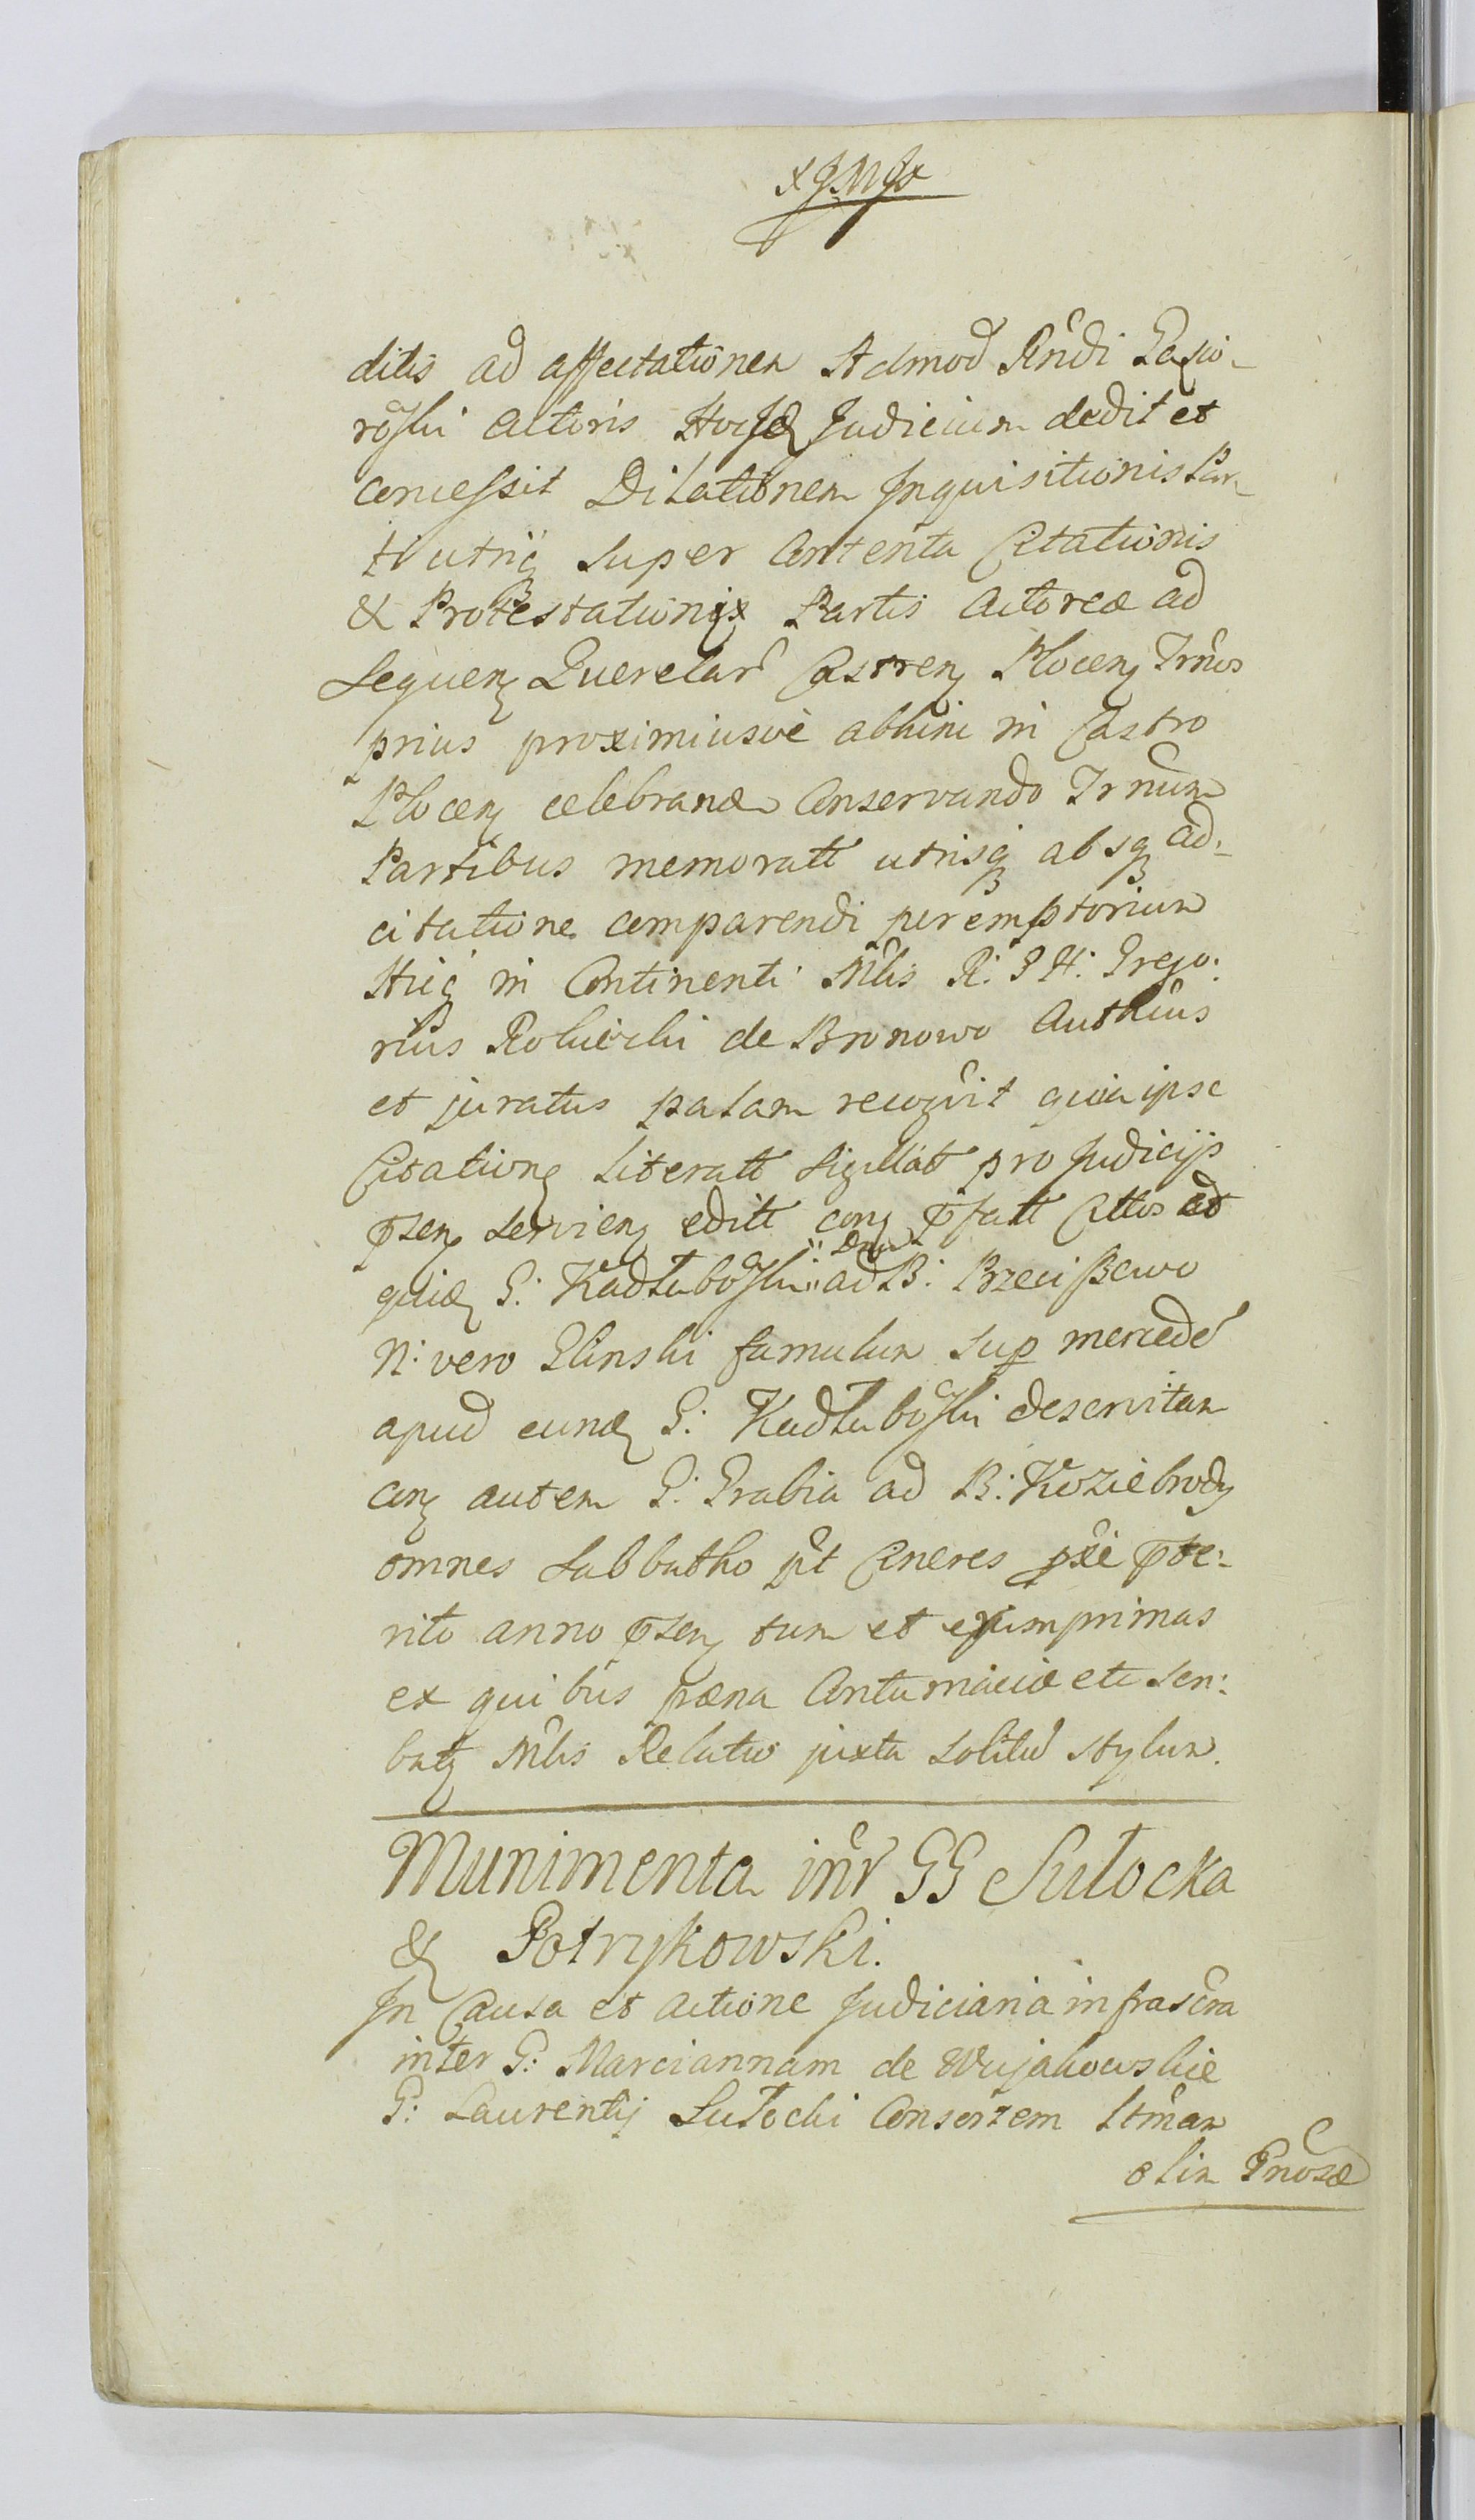 x J.M.J x
ditis ad affectationem Admod Rndi Gąsio-
rowski Actoris Hocce Judicium dedit et
concessit Dilationem Inquisitionis Par-
ti utriq super Contenta Citationis
& Protestationis Partis Actoreæ ad
sequen Querelar Castren Plocen Trnos
prius proximiusve abhinc in Castro
Plocen celebrand Conservando Trnum
Partibus memoratt utrisq absq ad-
citatione comparendi peremptorium
Hicq in Continenti Mlis R: P H: Grego:
rius Rokicki de Bronowo Authcus
et juratus palam recogvit quia ipse
Citationes Literatt Sigillatt pro Judicijs
psen servien editt conq pfatt Cttos et
quid G: Kadłubowski Dnum ad B: Brzeciszewo
N: vero Glinski famulum sup mercede
apud eund G: Kadłubowski deservitam
conq autem G: Grabia ad B: Koziebrody
omnes Sabbatho pt Cineres pxe pte:
rito anno psen tum et ejusmprimas
ex quibus pœna Contumaciæ etc Scri:
batq Mlis Relatio juxta solitu stylum.
Munimenta intr GG Sułocka
& Potrykowski.
In Causa et actione Judiciaria infrascra
inter G: Mariannam de Wujakowskie
G: Laurentij Sułocki Consortem Itman
olim Gnosæ